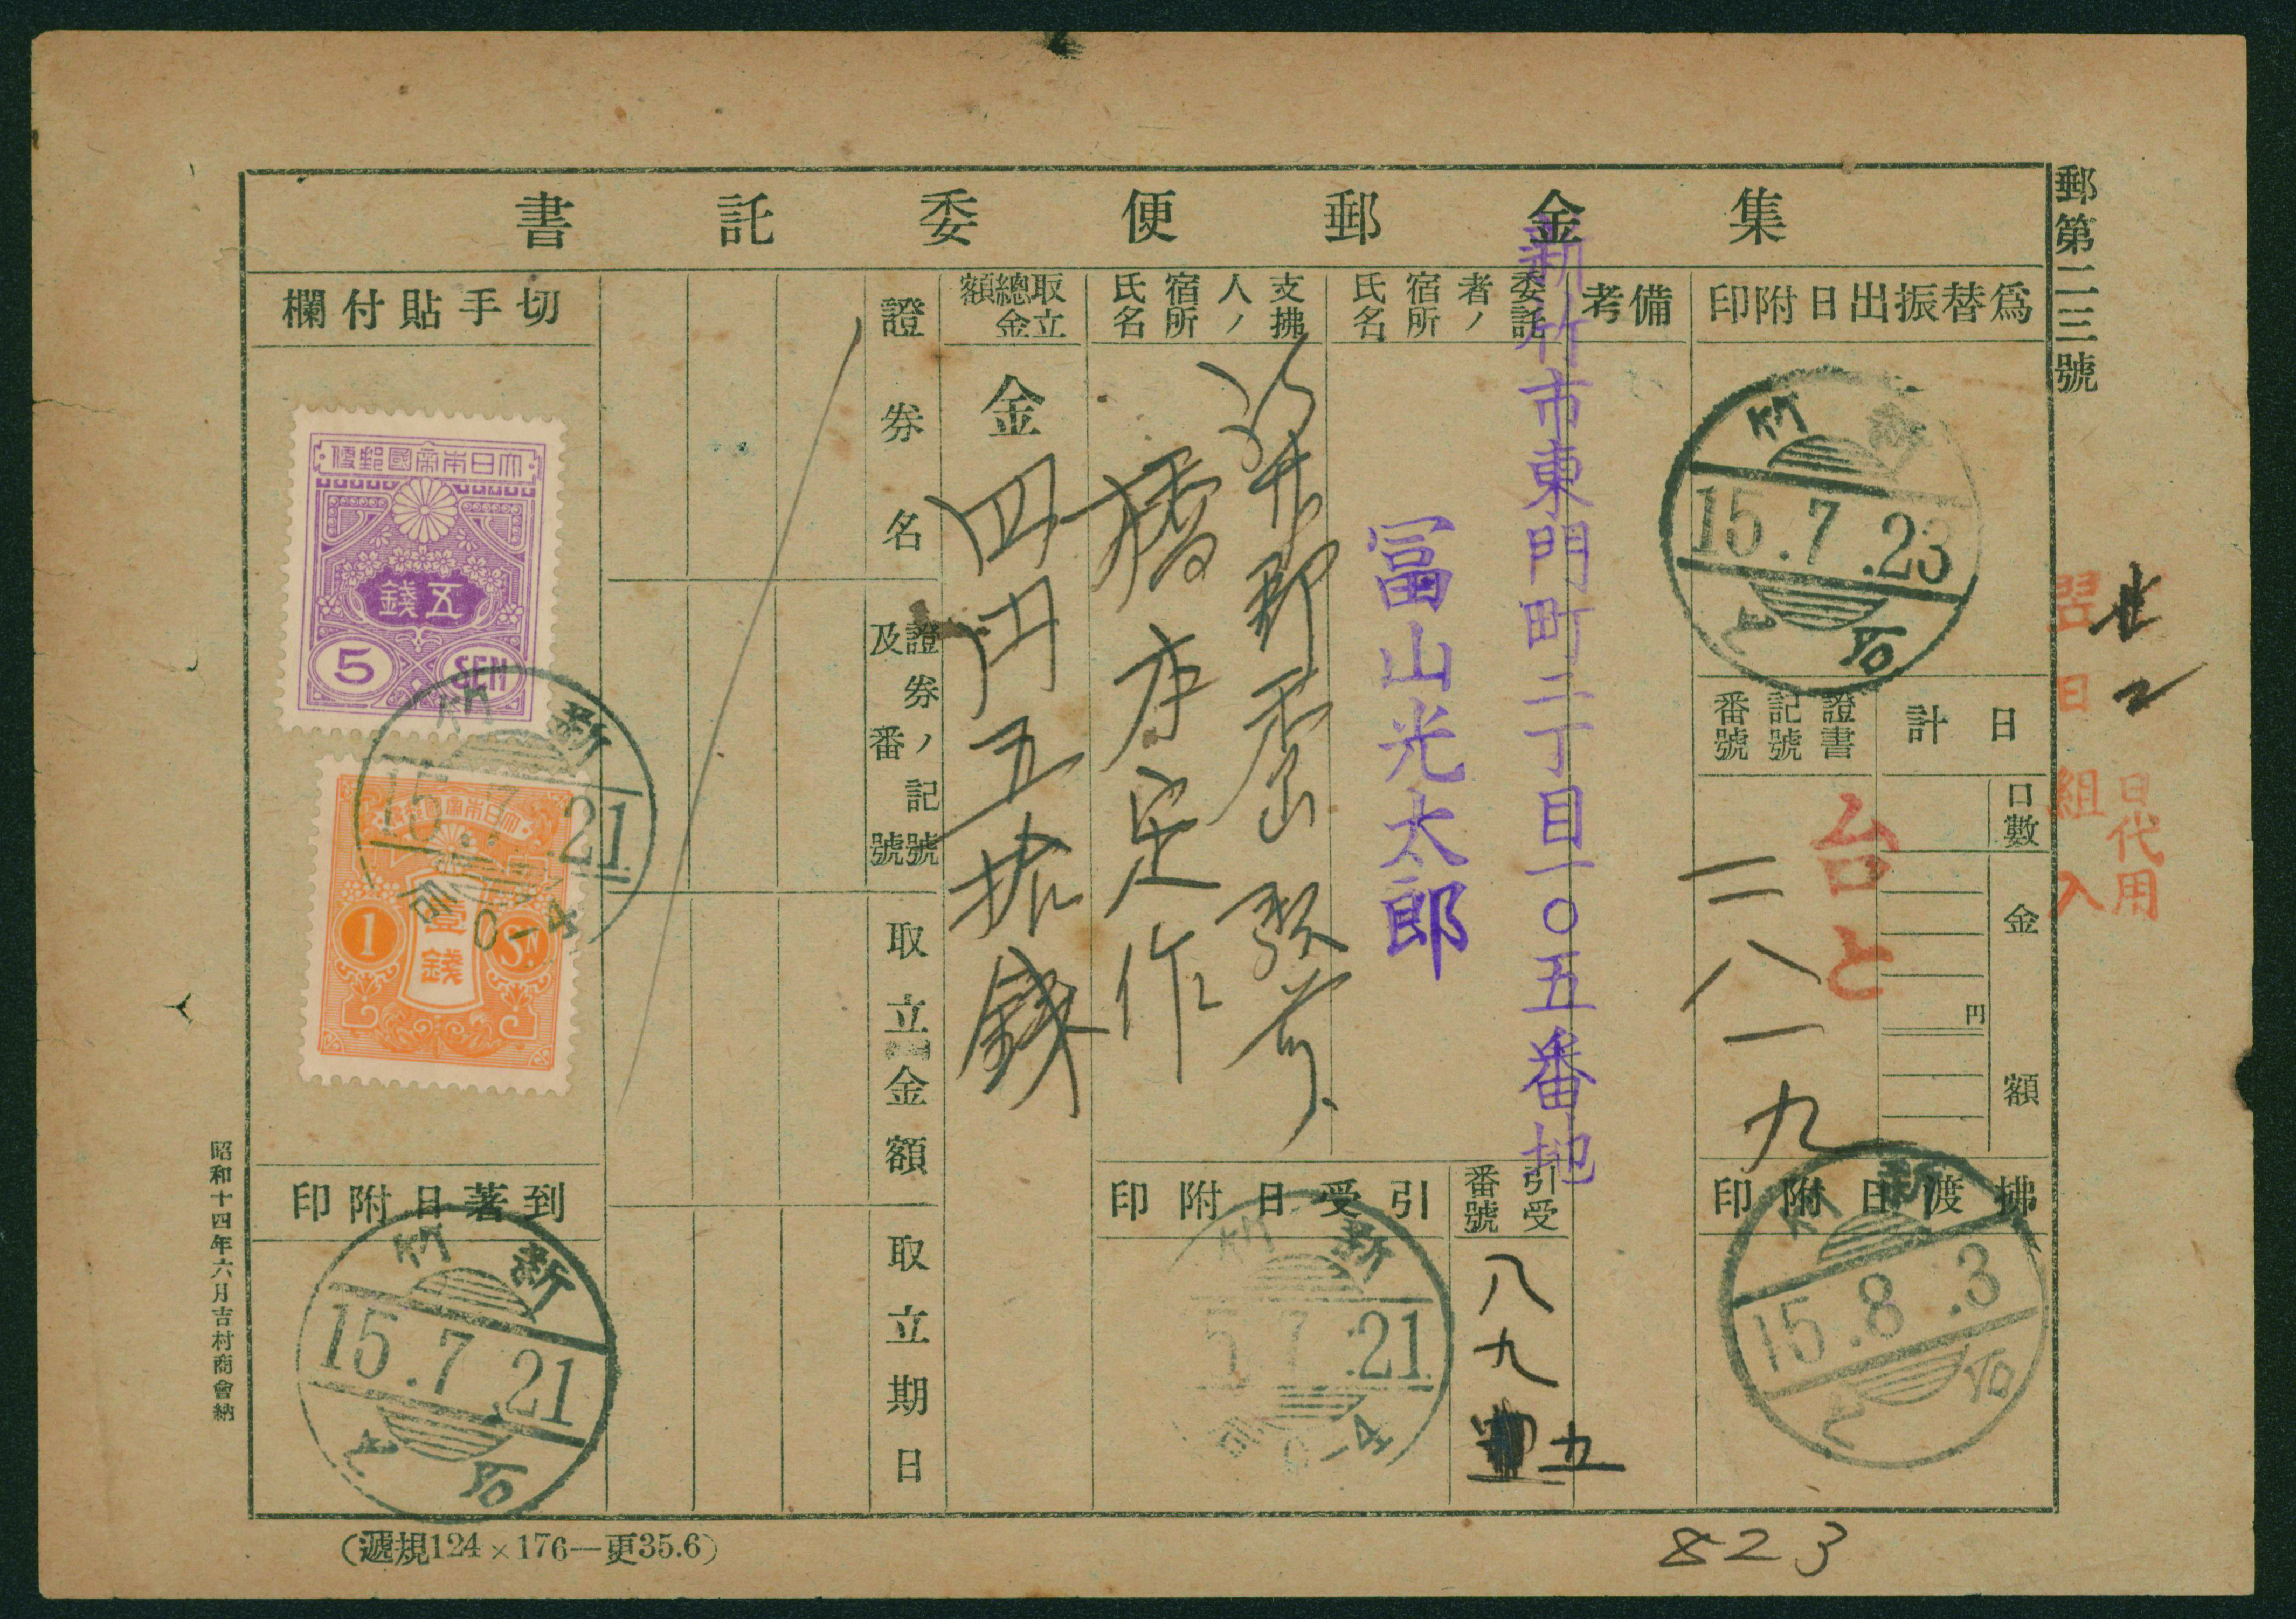 郵第二三號
集金郵便委託書
爲替振出日附印
新竹
15.7.23
台と
日計
口數
金額
円
證書記號番號
台と
二八一九
拂渡日附印
新竹
15.8.3
台と
備考
委託者ノ宿所氏名
新竹市東門町二丁目一〇五番地
冨山光太郎
引受番號
八九五
支拂人ノ宿所氏名
橋本定作
引受日附印
新竹
15.7.21
取立總金額
金四円五拾錢
證券名
證券ノ記號及番號
取立金額
取立期日
切手貼付欄
大日本帝國郵便
五錢
5 SEN
大日本帝國郵便
壹錢
1 Sn
新竹
15.7.21
到著日附印
新竹
15.7.21
台と
翌日組入
日代用
昭和十四年六月吉村商會納
(遞規124×176—更35.6)
823